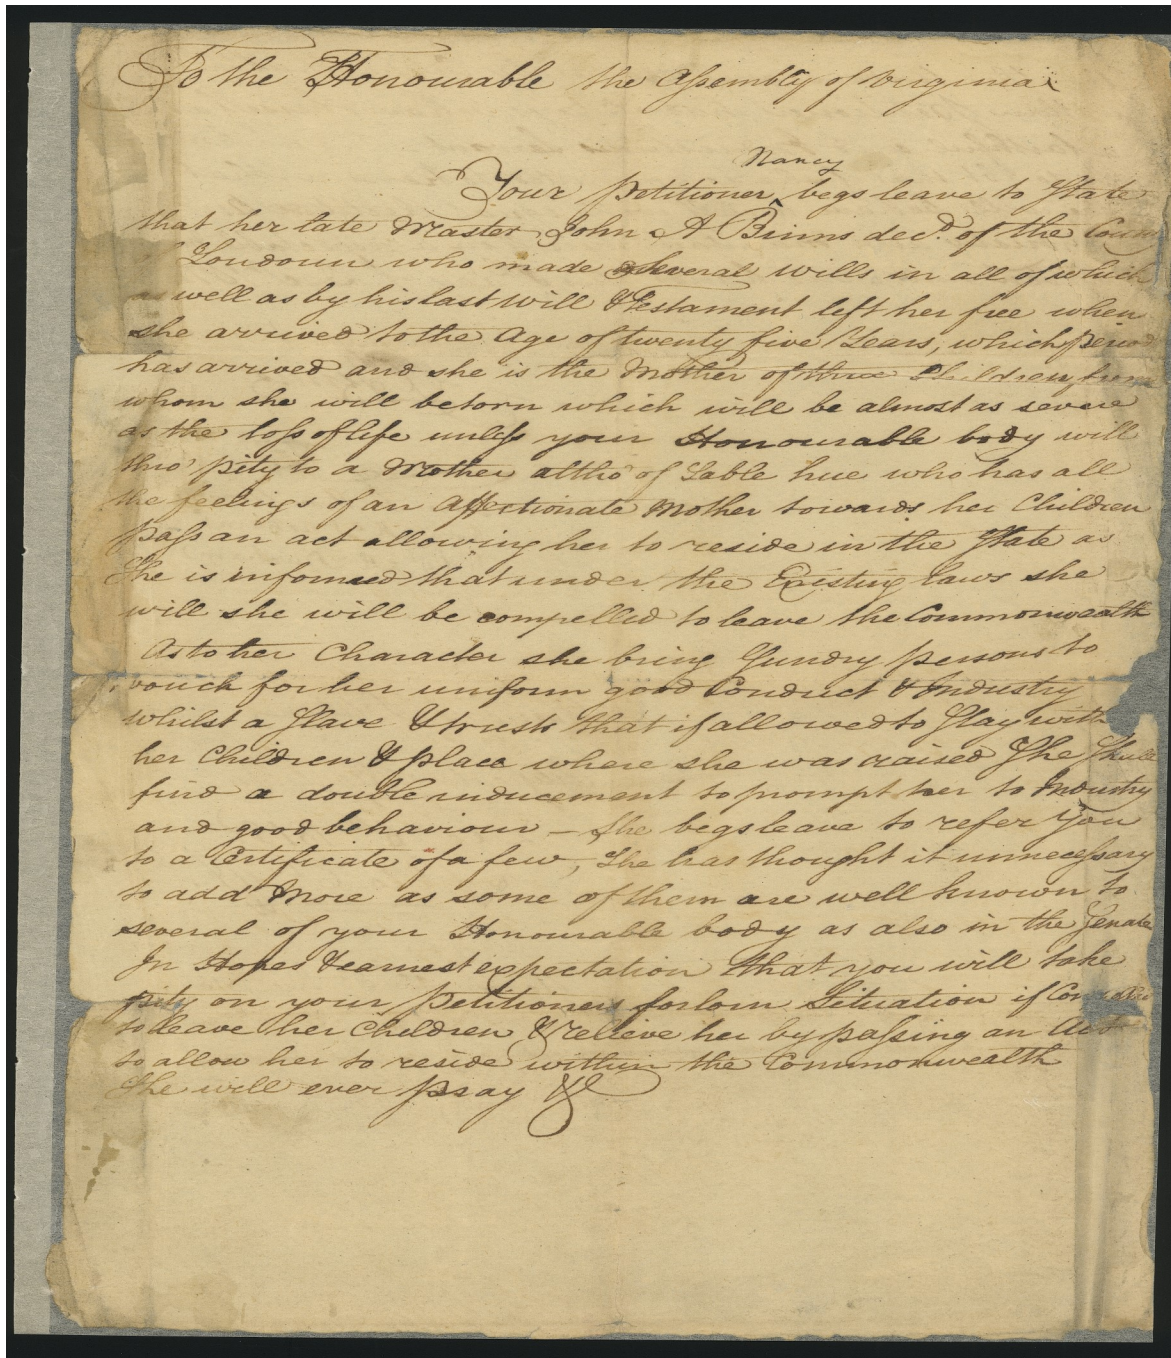 To the Honourable the Assembly of Virginia
Nancy
Your petitioner ‸ begs leave to State
that her late Master John A Binns decd. of the
Loudoun who made several wills in all of which
as well as by his last will & Testament left her free when
she arrived to the Age of twenty five Years, which period
has arrived and she is the Mother of three Children, from
whom she will be torn which will be almost as severe
as the loss of life unless your Honourable body will
thro' pity to a Mother altho' of Sable hue who has all
the feelings of an Affectionate Mother towards her Children
pass an act allowing her to reside in the State as
She is informed that under the Existing laws she
will she will be compelled to leave the Commonwealth
As to her Character she bring Sundry persons to
vouch for her uniform good Conduct & Industry
whilst a Slave & trusts that if allowed to Stay with
her Children & place where she was raised She Shall
find a double inducement to prompt her to Industry
and good behaviour – She begs leave to refer you
to a Certificate of a few, She has thought it unnecessary
to add More as some of them are well known to
several of your Honourable body as also in the Senate
In Hopes & earnest expectation that you will take
pity on your petitioners forlorn Situation if
to leave her Children & relieve her by passing an Act
to allow her to reside within the Commonwealth
She will ever pray &